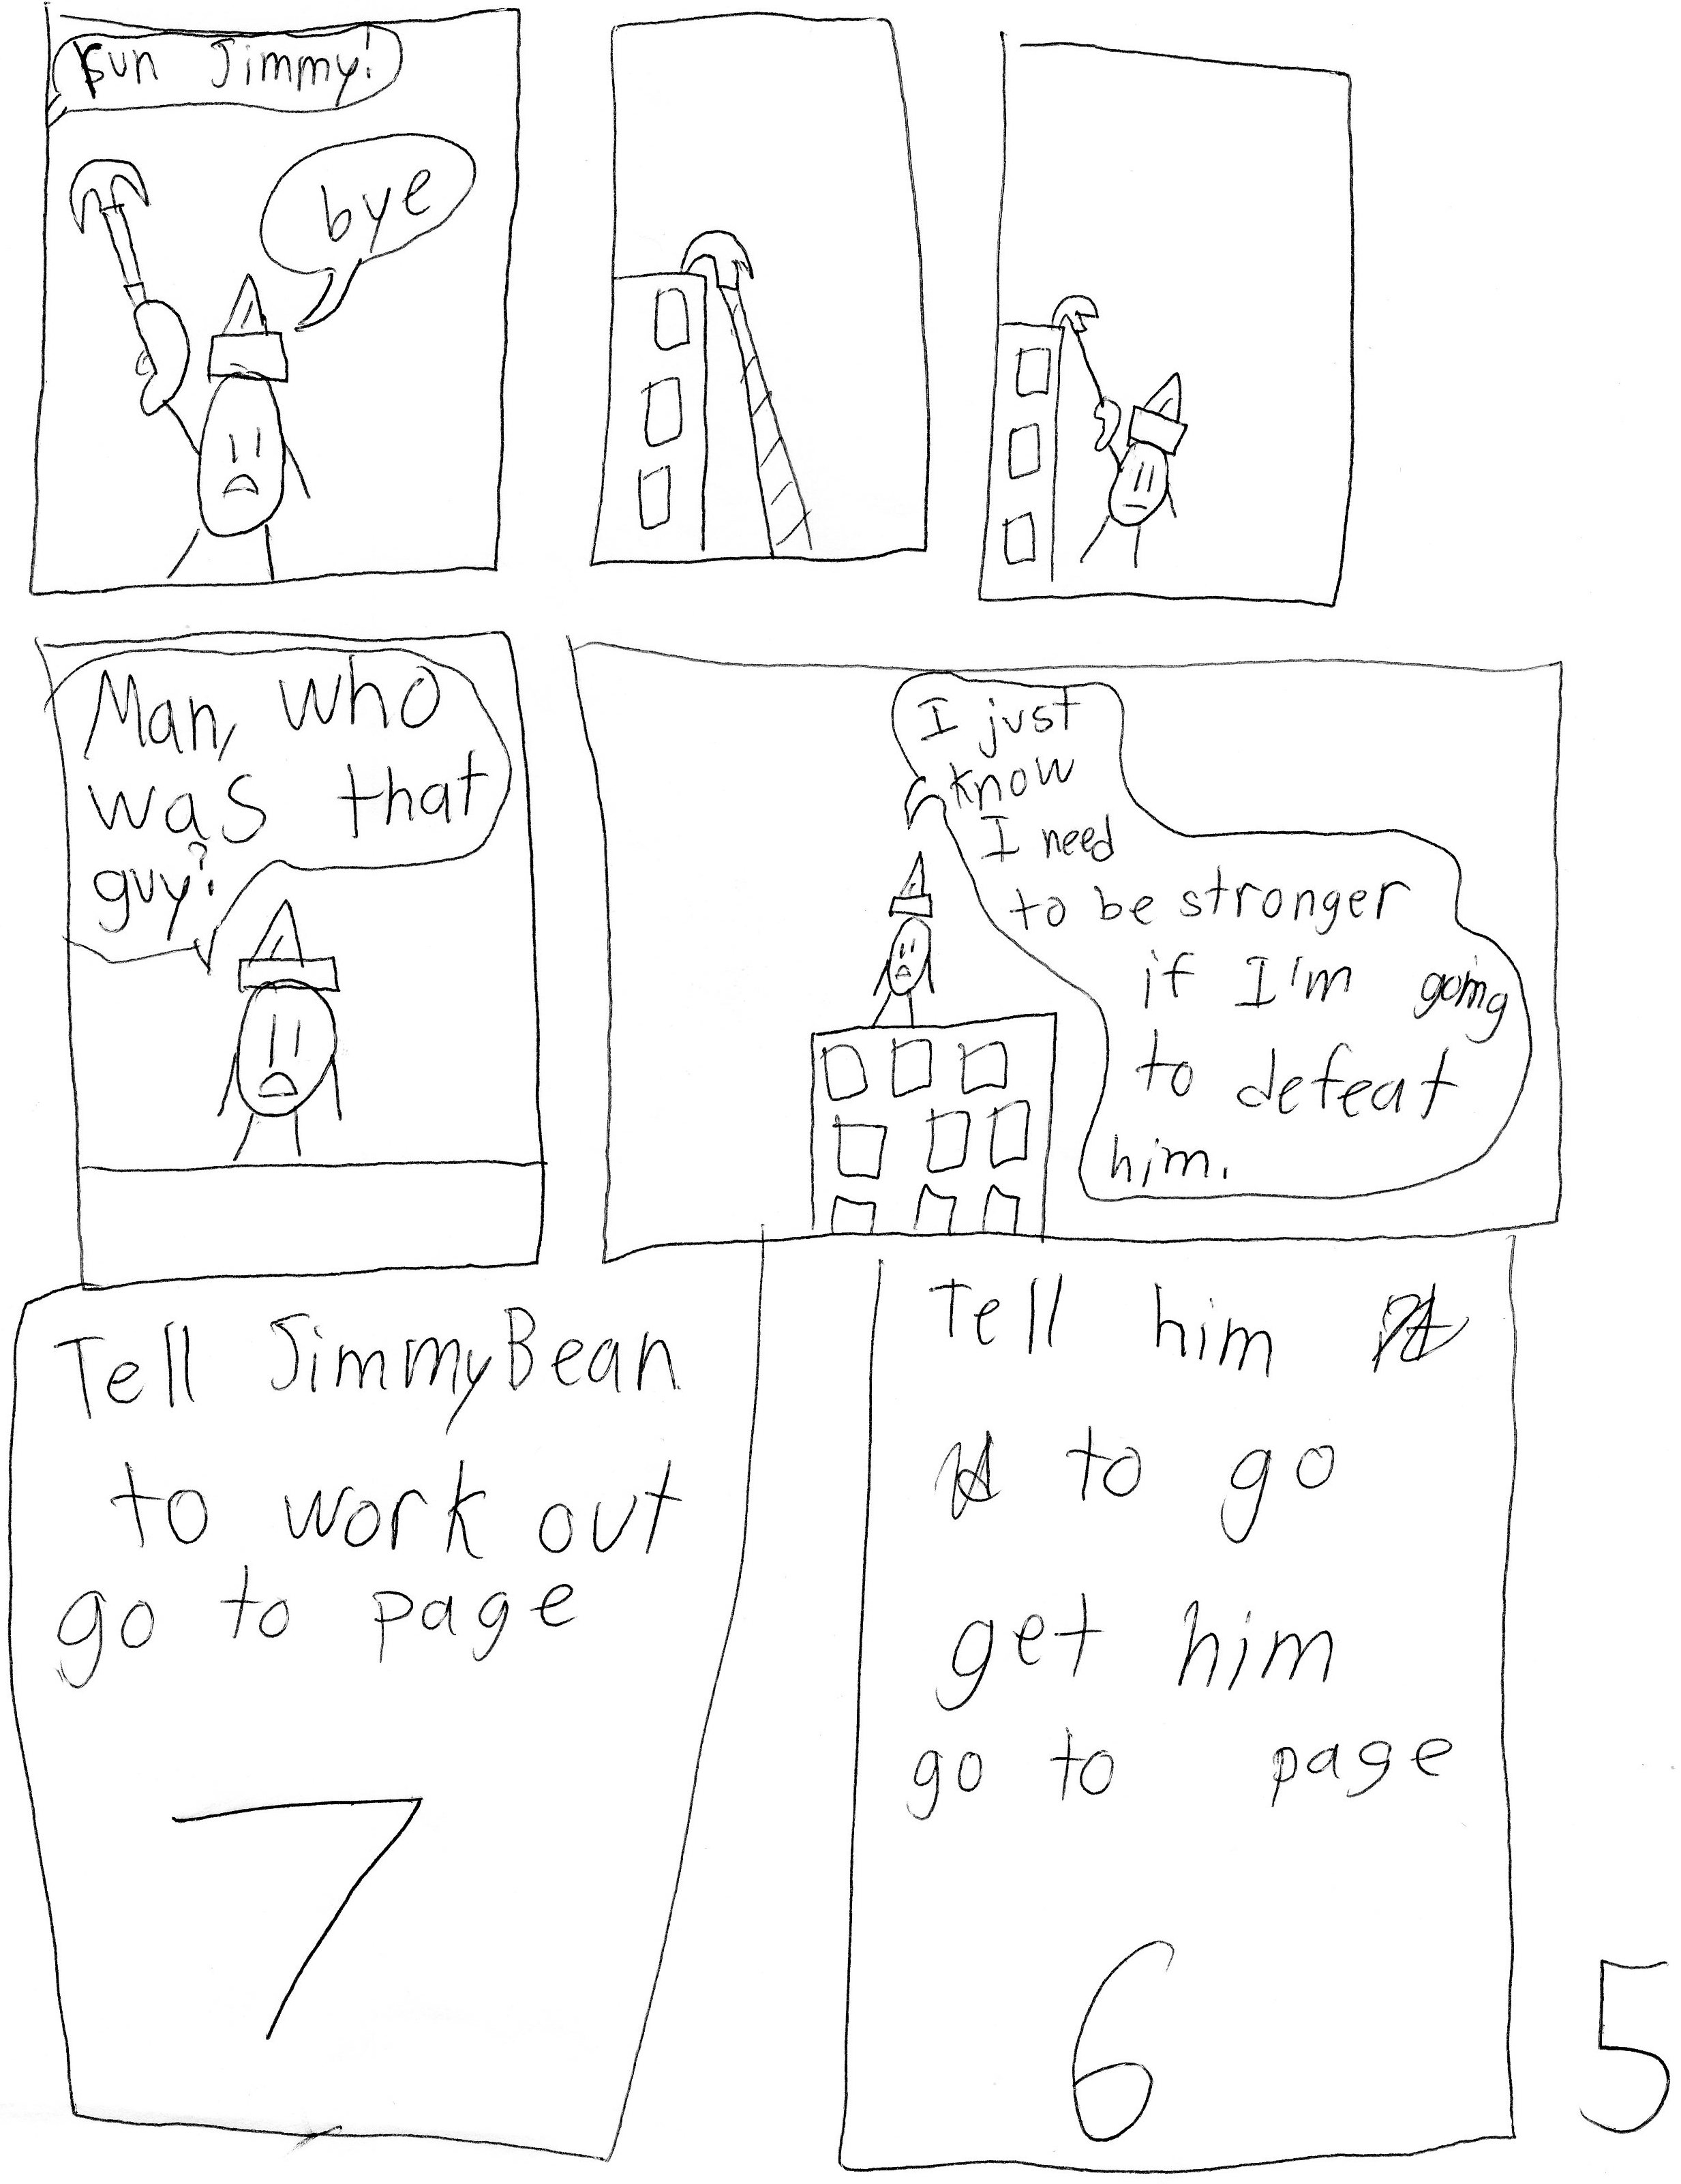 run Jimmy!
bye
Man, who
was that
guy?
I just
know
I need
to be stronger
if I'm going
to defeat
him.
Tell JimmyBean
to work out
go to page
7
Tell him
to go
get him
go to page
6
5